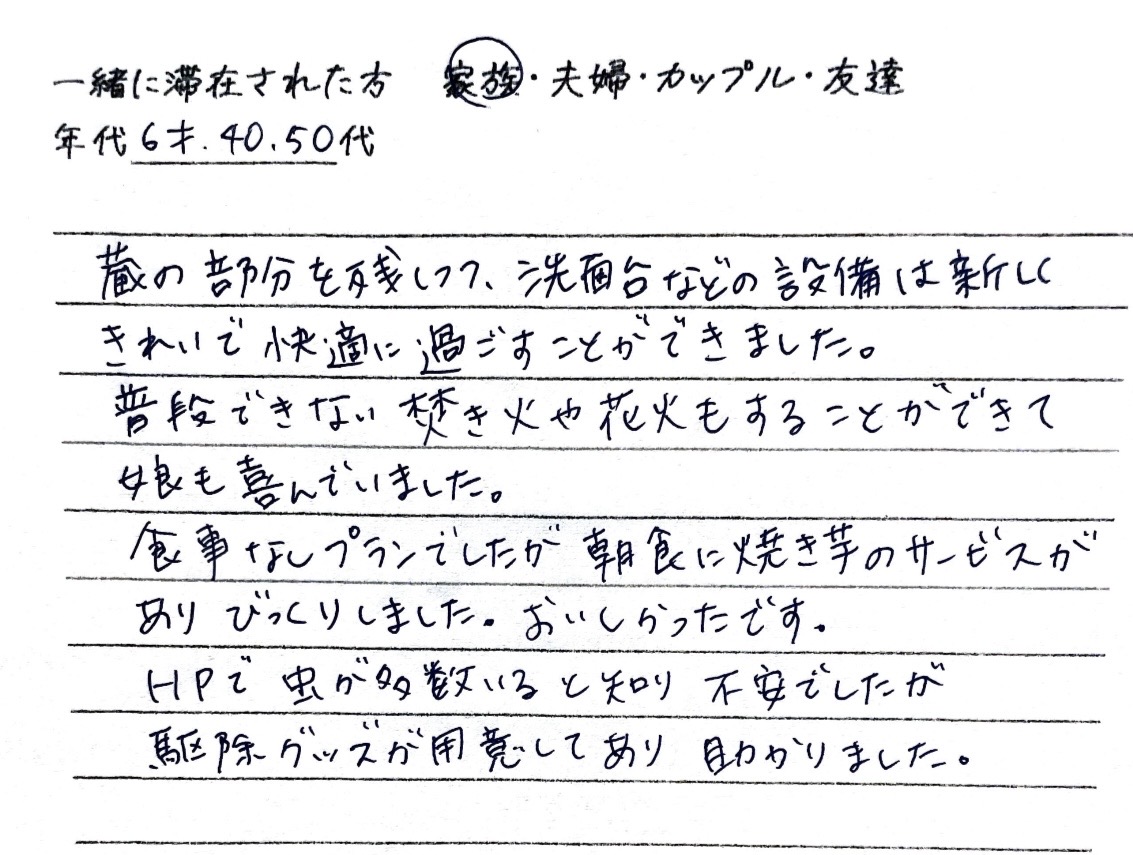 一緒に滞在された方　家族・夫婦・カップル・友達
年代 6才.40.50代
蔵の部分を残しつつ、洗面台などの設備は新しく
きれいで快適に過ごすことができました。
普段できない焚き火や花火もすることができて
娘も喜んでいました。
食事なしプランでしたが朝食に焼き芋のサービスが
ありびっくりしました。おいしかったです。
HPで虫が多数いると知り不安でしたが
駆除グッズが用意してあり助かりました。